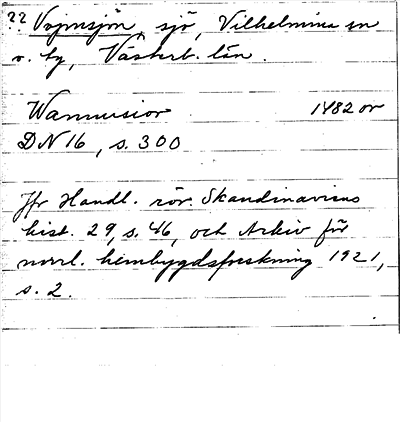 ?? Vojmsjön, sjö, Vilhelmina sn
o. by, Västerb. län.
Warmusior 1482 or
DN 16, s. 300
Jfr Handl. rör. Skandinaviens
hist. 29, s. 46, och Arkiv för
norrl. hembygdsforskning 1921,
s. 2.